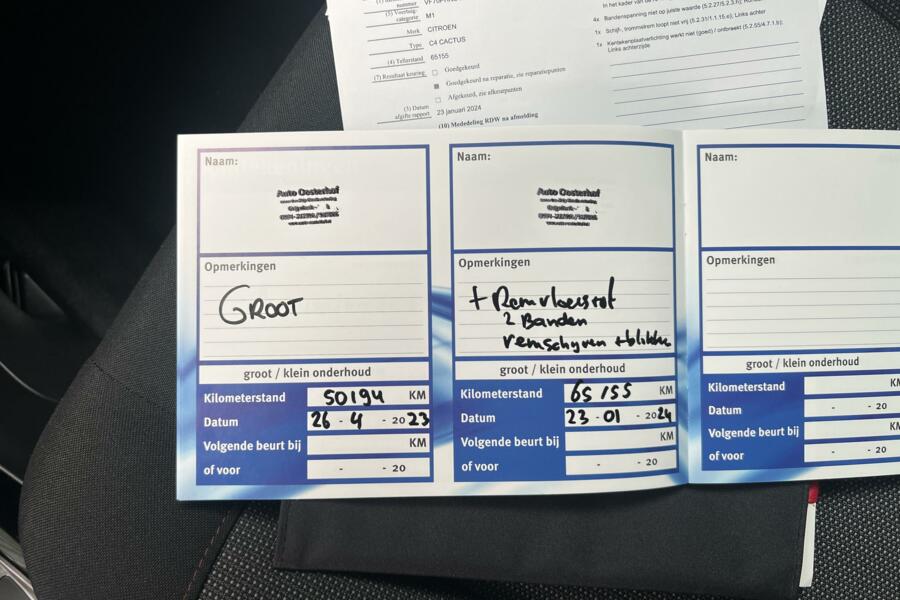 nummer
(5) Voertuig-
categorie M1
Merk CITROEN
Type C4 CACTUS
(4) Tellerstand 65155
(7) Resultaat keuring
Goedgekeurd
Goedgekeurd na reparatie, zie reparatiepunten
Afgekeurd, zie afkeurpunten
(3) Datum
afgifte rapport 23 januari 2024
(10) Mededeling RDW na afmelding
4x Bandenspanning niet op juiste waarde (5.2.27/5.2.3.h);
1x Schijf-, trommelrem loopt niet vrij (5.2.31/1.1.15.e); Links achter
1x Kentekenplaatverlichting werkt niet (goed) / ontbreekt (5.2.55/4.7.1.b);
Links achterzijde
Naam:
Auto Oosterhof
Opmerkingen
GROOT
groot / klein onderhoud
Kilometerstand 50194 KM
Datum 26 - 4 - 2023
Volgende beurt bij KM
of voor - - 20
Naam:
Auto Oosterhof
Opmerkingen
+ Remvloeistof
2 Banden
remschyven + blokke
groot / klein onderhoud
Kilometerstand 65155 KM
Datum 23 - 01 - 2024
Volgende beurt bij KM
of voor - - 20
Naam:
Opmerkingen
groot / klein onderhoud
Kilometerstand KM
Datum - - 20
Volgende beurt bij KM
of voor - - 20